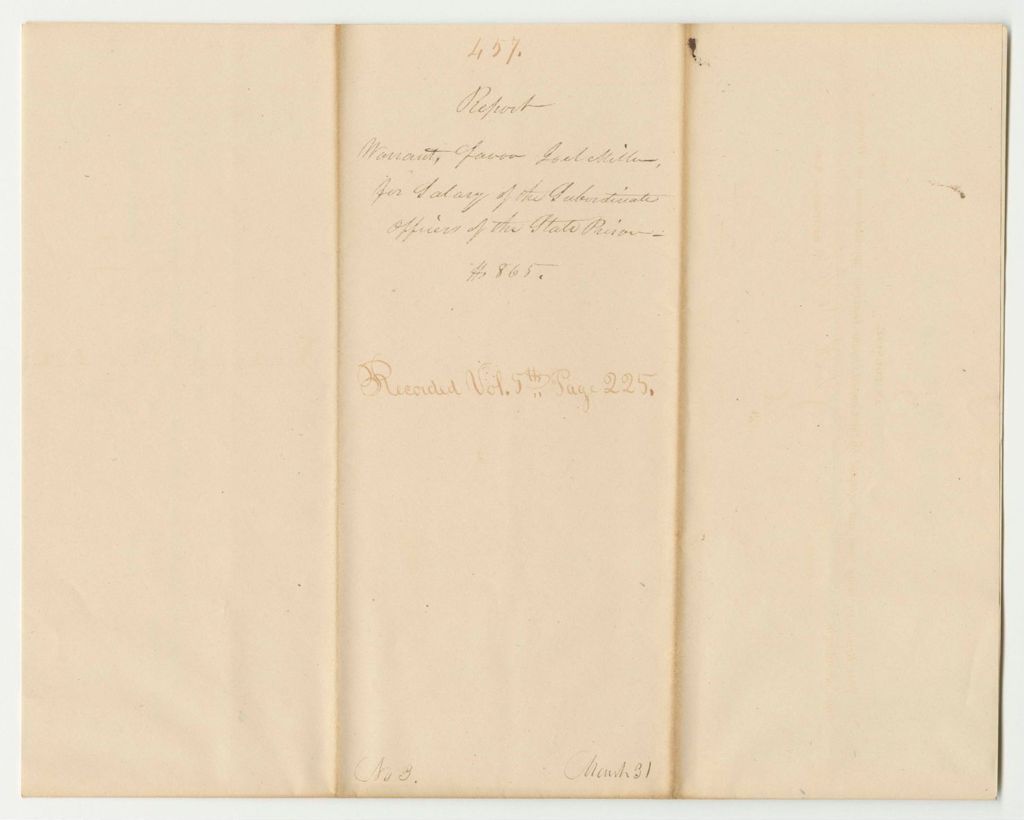 457.
Report
Warrant, favor Joel Miller,
for Salary of the Subordinate
Officers of the State Prison=
$865.
Recorded Vol. 5th Page 225.
No 3.
March 31